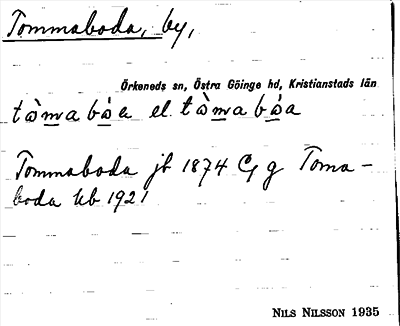 Tommaboda, by,
Örkeneds sn, Östra Göinge hd, Kristianstads län
tòmabòa el. tòmabòa
Tommaboda jb 1874 g Toma-
boda kb 1921
NILS NILSSON 1935